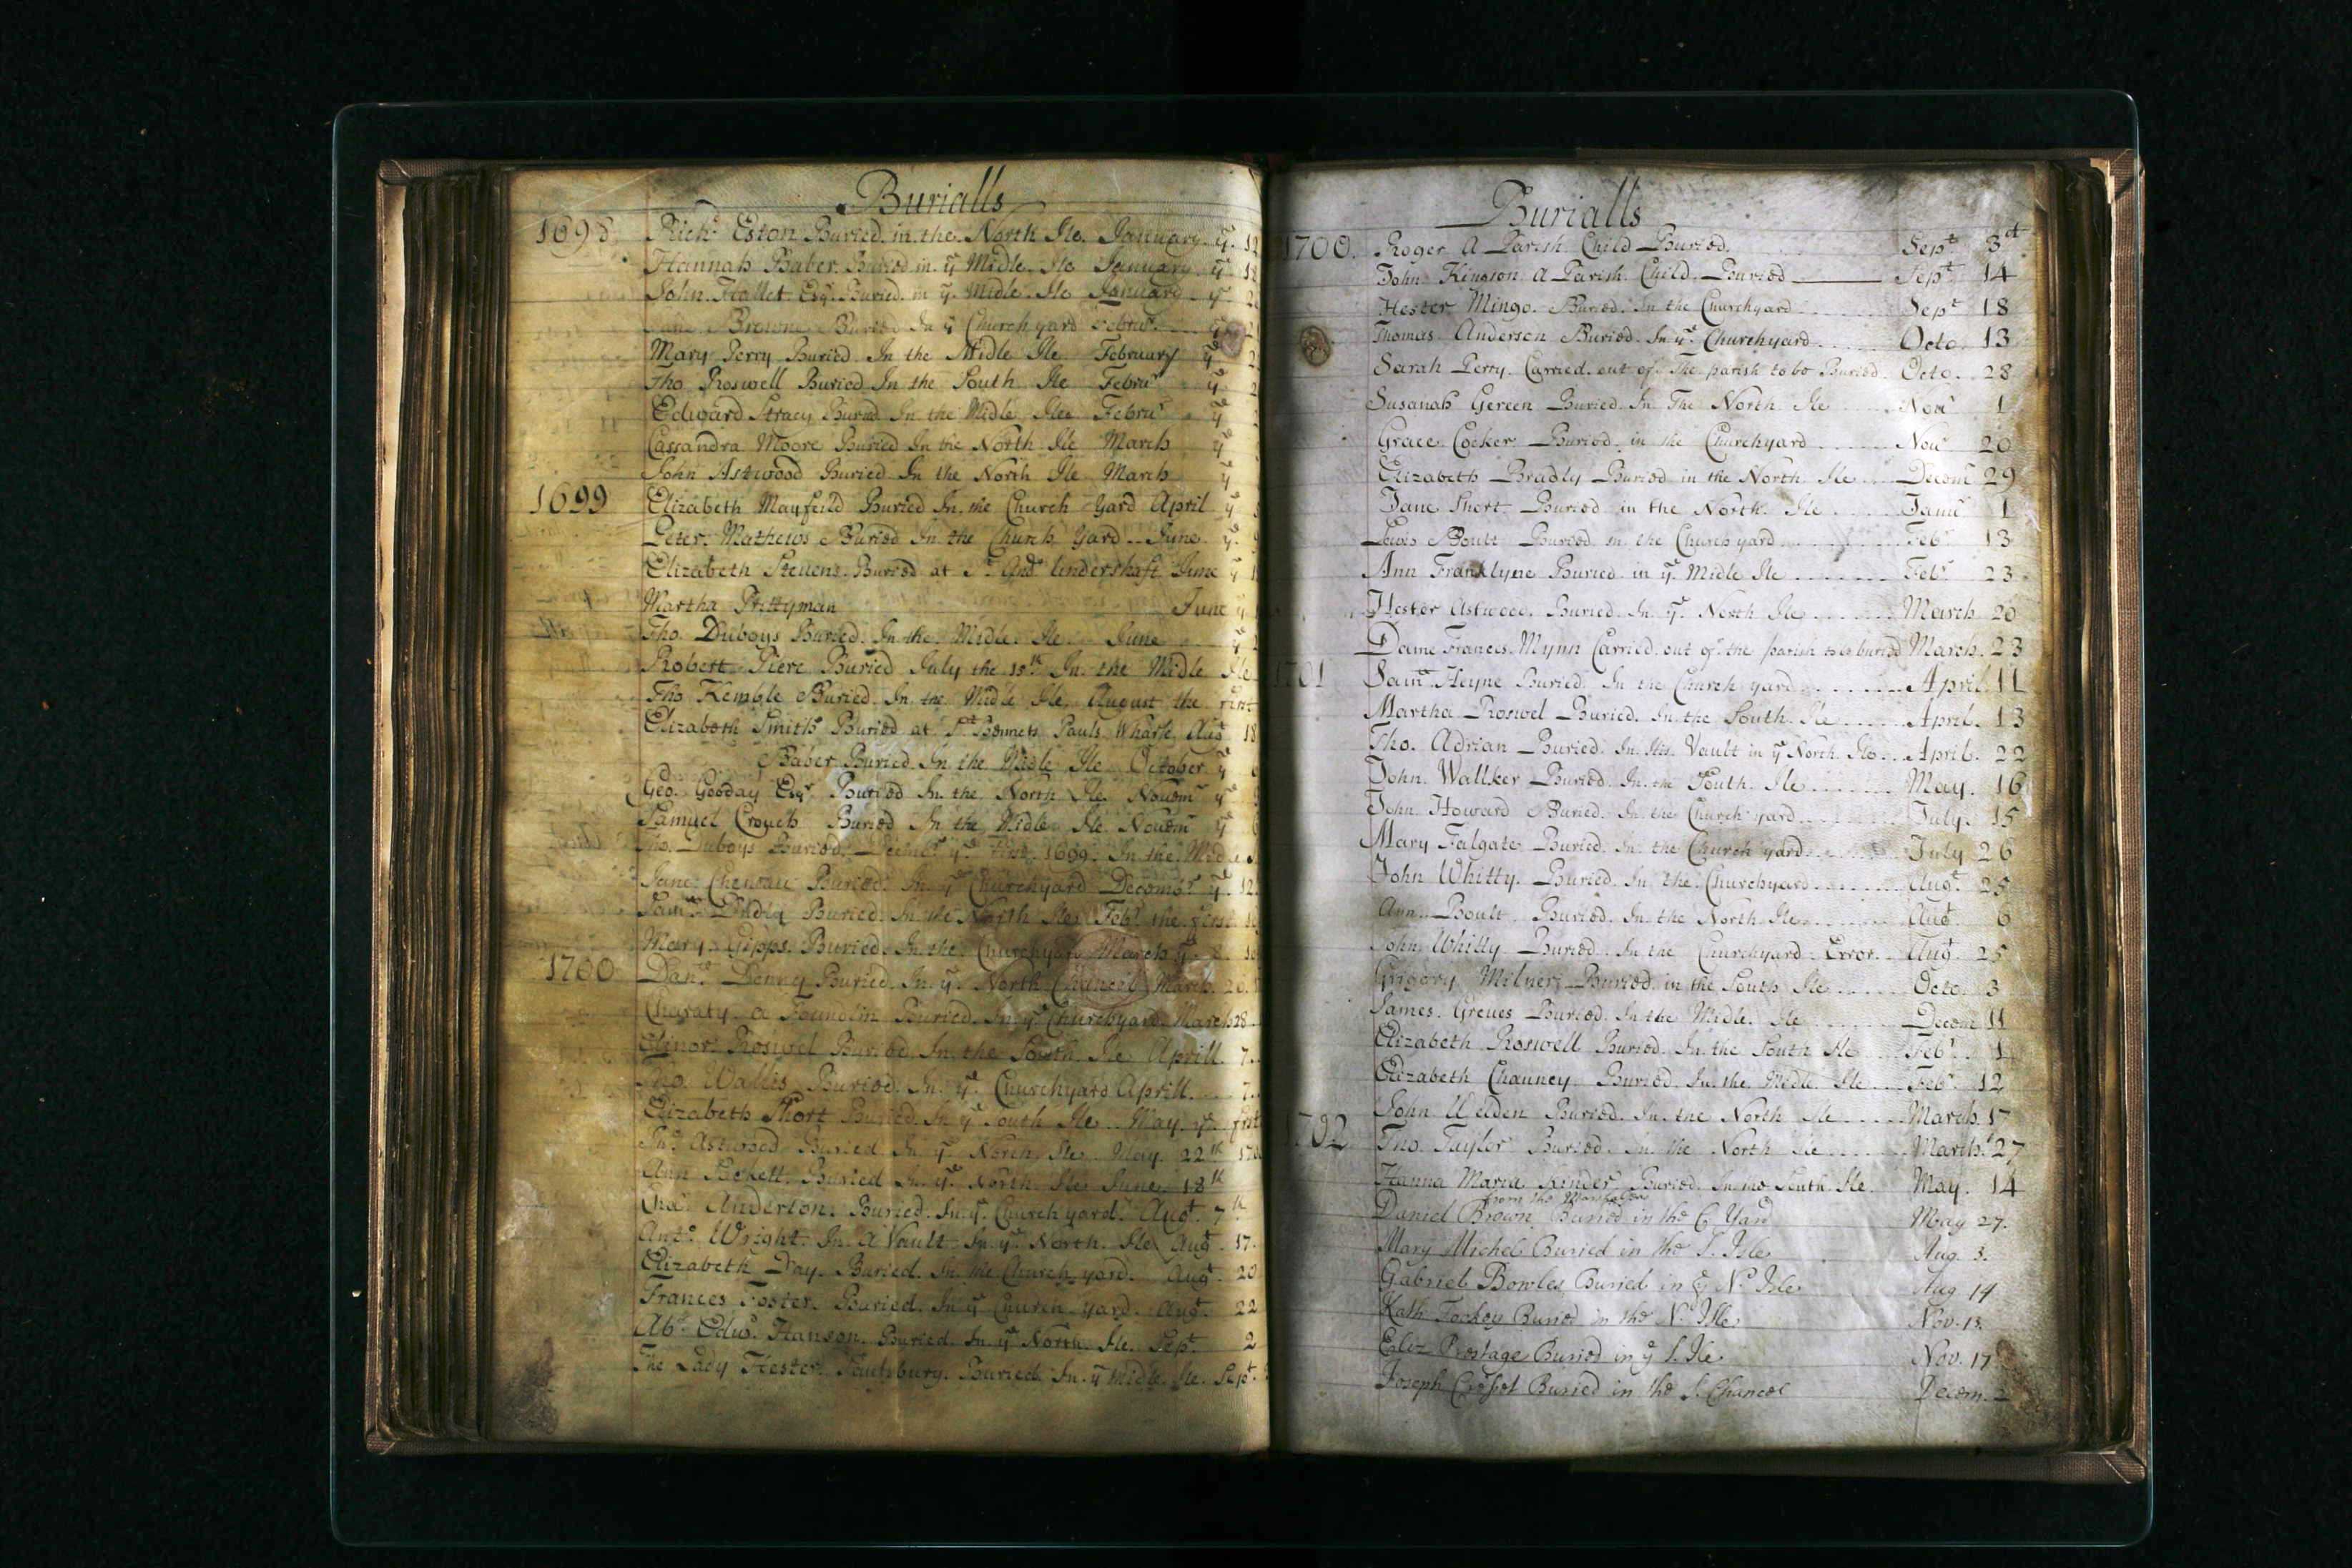 Burialls
1698 Richd Eston Buried in the North Ile January ye 12
Hannah Baber Buried in ye Midle Ile January ye 18
John Hallet Esqr Buried in ye Midle Ile January ye
Browne Buried In ye Church yard Februr ye
Mary Perry Buried In the Midle Ile February ye
Tho Roswell Buried In the South Ile Februr ye
Edward Stracy Buried In the Midle Ile Februr ye
Cassandra Moore Buried In the North Ile March ye
John Astwood Buried In the North Ile March ye
1699 Elizabeth Mayfeild Buried In the Church Yard April ye
Peter Mathews Buried In the Church Yard June ye
Elizabeth Steuens Buried at St Andr Undershaft June ye
Martha Prittyman June ye
Tho. Duboys Buried In the Midle Ile June ye
Robert Piere Buried July the 18th In the Midle Ile
Tho Kemble Buried In the Midle Ile August the first
Elizabeth Smith Buried at St Bennets Pauls Wharfe Augt 18
Baber Buried In the Midle Ile October ye
Geo. Gooday Esqr Buried In the North Ile Nouemr ye
Samuel Crouch Buried In the Midle Ile Nouemr ye
Tho. Duboys Buried Decembr ye first 1699 In the Mid
Jane Buried In ye Churchyard Decembr ye 12
Buried In the North Ile Febr the first
Mary Gipps Buried In the Churchyard March ye 8
1700 Danl Denny Buried In ye North Chancel March 20
Charaty a Foundlin Buried In ye Churchyard March 28
Elinor Roswel Buried In the South Ile Aprill 7
Tho. Wallis Buried In ye Churchyard Aprill 7
Elizabeth Short Buried In ye South Ile May ye first
Jno Astwood Buried In ye North Ile May 22th
Ann Buried In ye North Ile June 18th
Chas Anderson Buried In ye Church yard Augt 7th
Anto Wright In A Vault In ye North Ile Augt 17
Elizabeth Day Buried In the Church yard Augt 20
Frances Foster Buried In ye Church yard Augt 22
Edwd Hanson Buried In ye North Ile Sept 2
The Lady Hester Buried In ye Midle Ile Sept
Burialls
1700. Roger A Parish Child Buried Sept 3d
John Kingson A Parish Child Buried Sept 14
Hester Mingo Buried In the Churchyard Sept 18
Thomas Anderson Buried In ye Churchyard Octo 13
Sarah Perry Carried out of the parish to be Buried Octo. 28
Susanah Gereen Buried In The North Ile Nour 1
Grace Cocker Buried in the Churchyard Nour 20
Elizabeth Bradly Buried in the North Ile Decemr 29
Jane Short Buried in the North Ile 1
Lewis Boult Buried in the Churchyard Febr 13
Ann Franklyne Buried in ye Midle Ile Febr 23
Hester Astwood Buried In ye North Ile March 20
Dame Frances Wynn Carried out of the parish to be buried March 23
1701 Samll Heyne Buried In the Church yard April 11
Martha Roswel Buried In the South Ile April 13
Tho. Adrian Buried In His Vault in ye North Ile April 22
John Wallker Buried In the South Ile May 16
John Howard Buried In the Church yard July 15
Mary Falgate Buried In the Church yard July 26
John Whitty Buried In the Churchyard Augt 25
Ann Boult Buried In the North Ile Augt 6
John Whitty Buried In the Churchyard Error Augt 25
Grigory Milner Buried in the South Ile Octo. 3
James Greues Buried In the Midle Ile Decemr 11
Elizabeth Roswell Buried In the South Ile Febr 1
Elizabeth Chauncy Buried In the Midle Ile Febr 12
John Welden Buried In the North Ile March 17
1702 Tho. Taylor Buried In the North Ile March 27
Hanna Maria Kinder Buried In the South Ile May 14
from the
Daniel Brown Buried in the C Yard May 27.
Mary Michel Buried in the S. Isle Aug. 3.
Gabriel Bowles Buried in ye No Isle Aug 14
Kath Buried in the No Isle Nov. 13
Eliz Prostage Buried in ye S. Ile Nov. 17
Joseph Buried in the S. Chancel Decem. 2